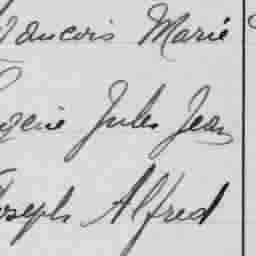 François Marie
Eugène Jules Jean
Joseph Alfred